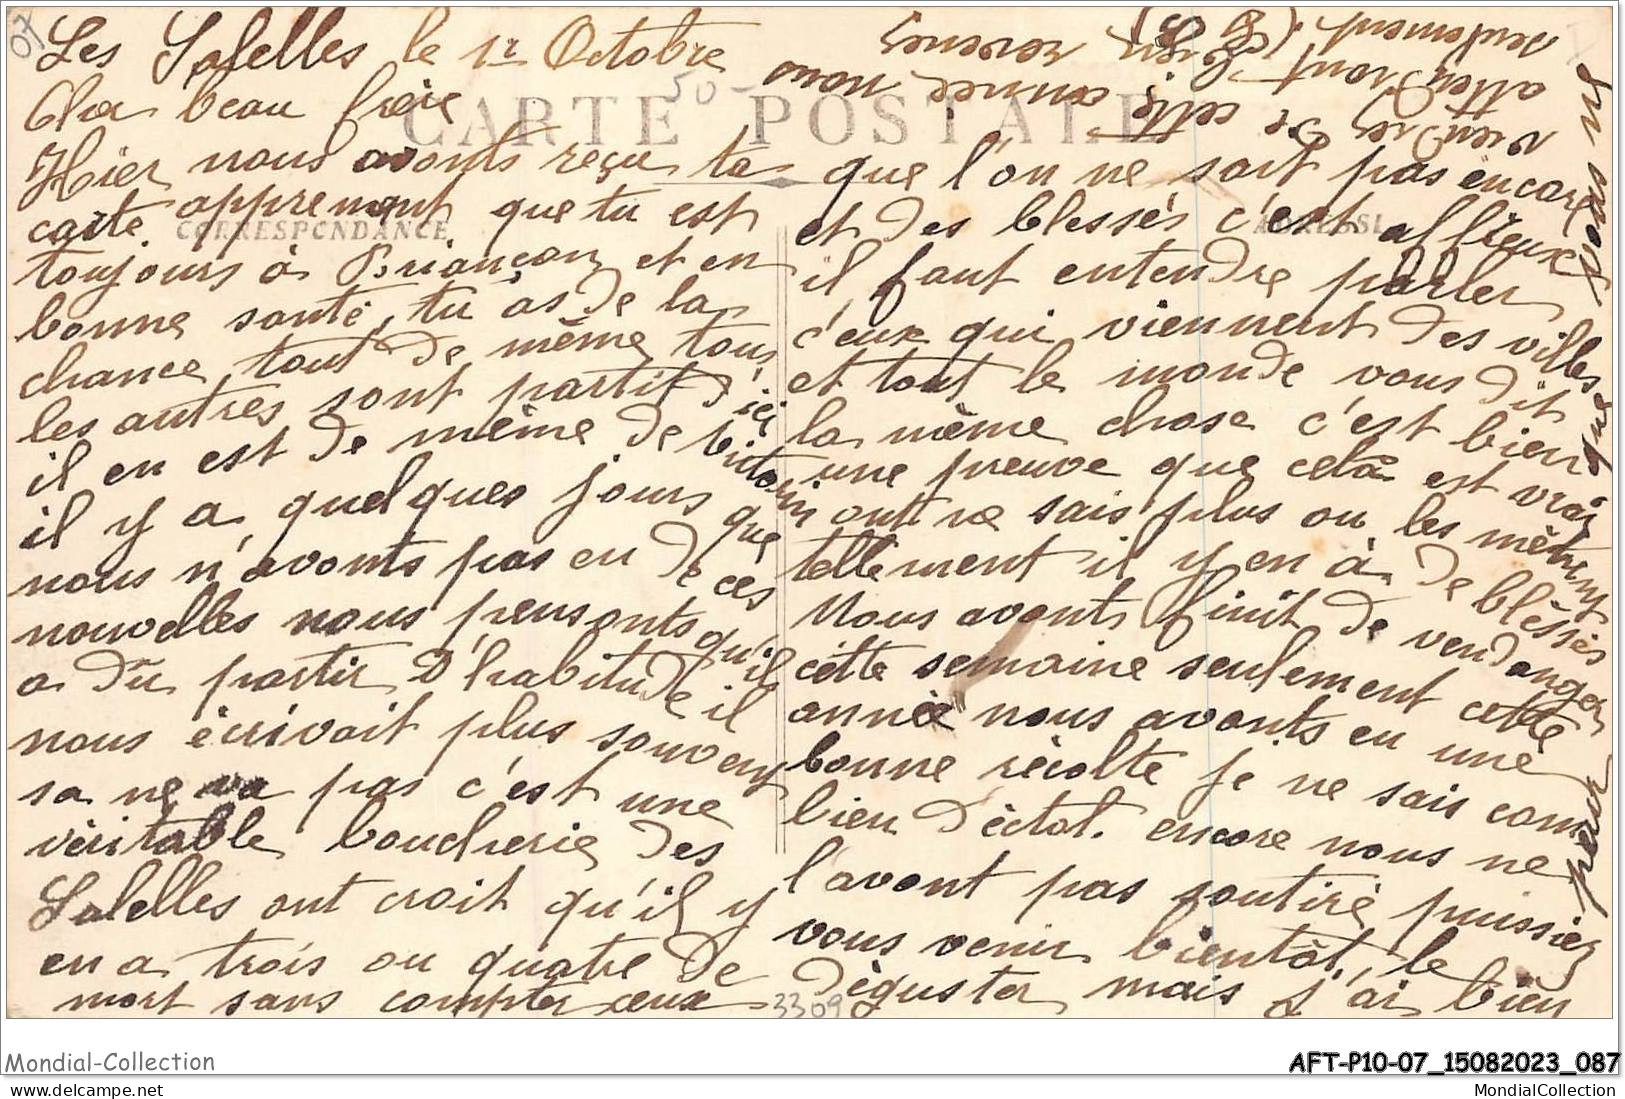 07
Les Salelles le 1r Octobre
Cher beau frère
Hier nous avonts reçu ta
carte apprenant que tu est
toujours à Briançon et en
bonne santé, tu as de la
chance tout de même tous
les autres sont partit d'ici
il en est de même de
il y a quelques jours que
nous n'avonts pas eu de ces
nouvelles nous pensonts qu'il
a du partir d'habitude il
nous écrivait plus souvent
sa ne va pas c'est une
véritable boucherie des
Salelles ont croit qu'il y
en a trois ou quatre de
mort sans compter ceux
CARTE POSTALE
CORRESPONDANCE
ADRESSE
50
que l'on ne sait pas encore
et des blessés c'est affreux
il faut entendre parler
c'eux qui viennent des villes
et tout le monde vous dit
la même chose c'est bien
une preuve que celà est vrai
ont ne sais plus ou les mètrent
tellement il y en à de blèssès
Nous avonts finit de vendanger
cette semaine seulement cette
année nous avonts eu une
bonne récolte je ne sais com
bien d'éctol. encore nous ne
l'avont pas soutiré puissiez
vous venir bientôt le
déguster mais j'ai bien
peur
viendres de cette année nous
attendront
seulement
3309
Mondial-Collection
AFT-P10-07_15082023_087
www.delcampe.net
MondialCollection